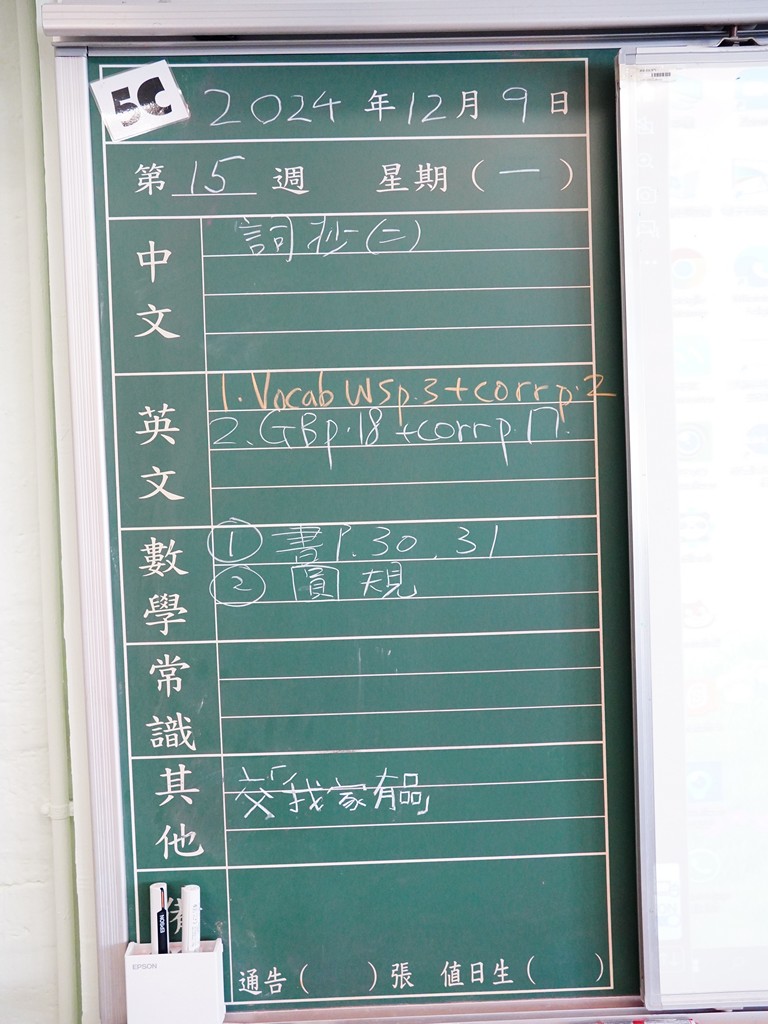 5C
2024年12月9日
第15週 星期(一)
中文
詞抄(二)
英文
1. Vocab WS p.3 + corr p.2
2. GB p.18 + corr p.17.
數學
① 書P.30, 31
② 圓規
常識
其他
交「我家有品」
EPSON
EPSON
通告( )張 值日生( )